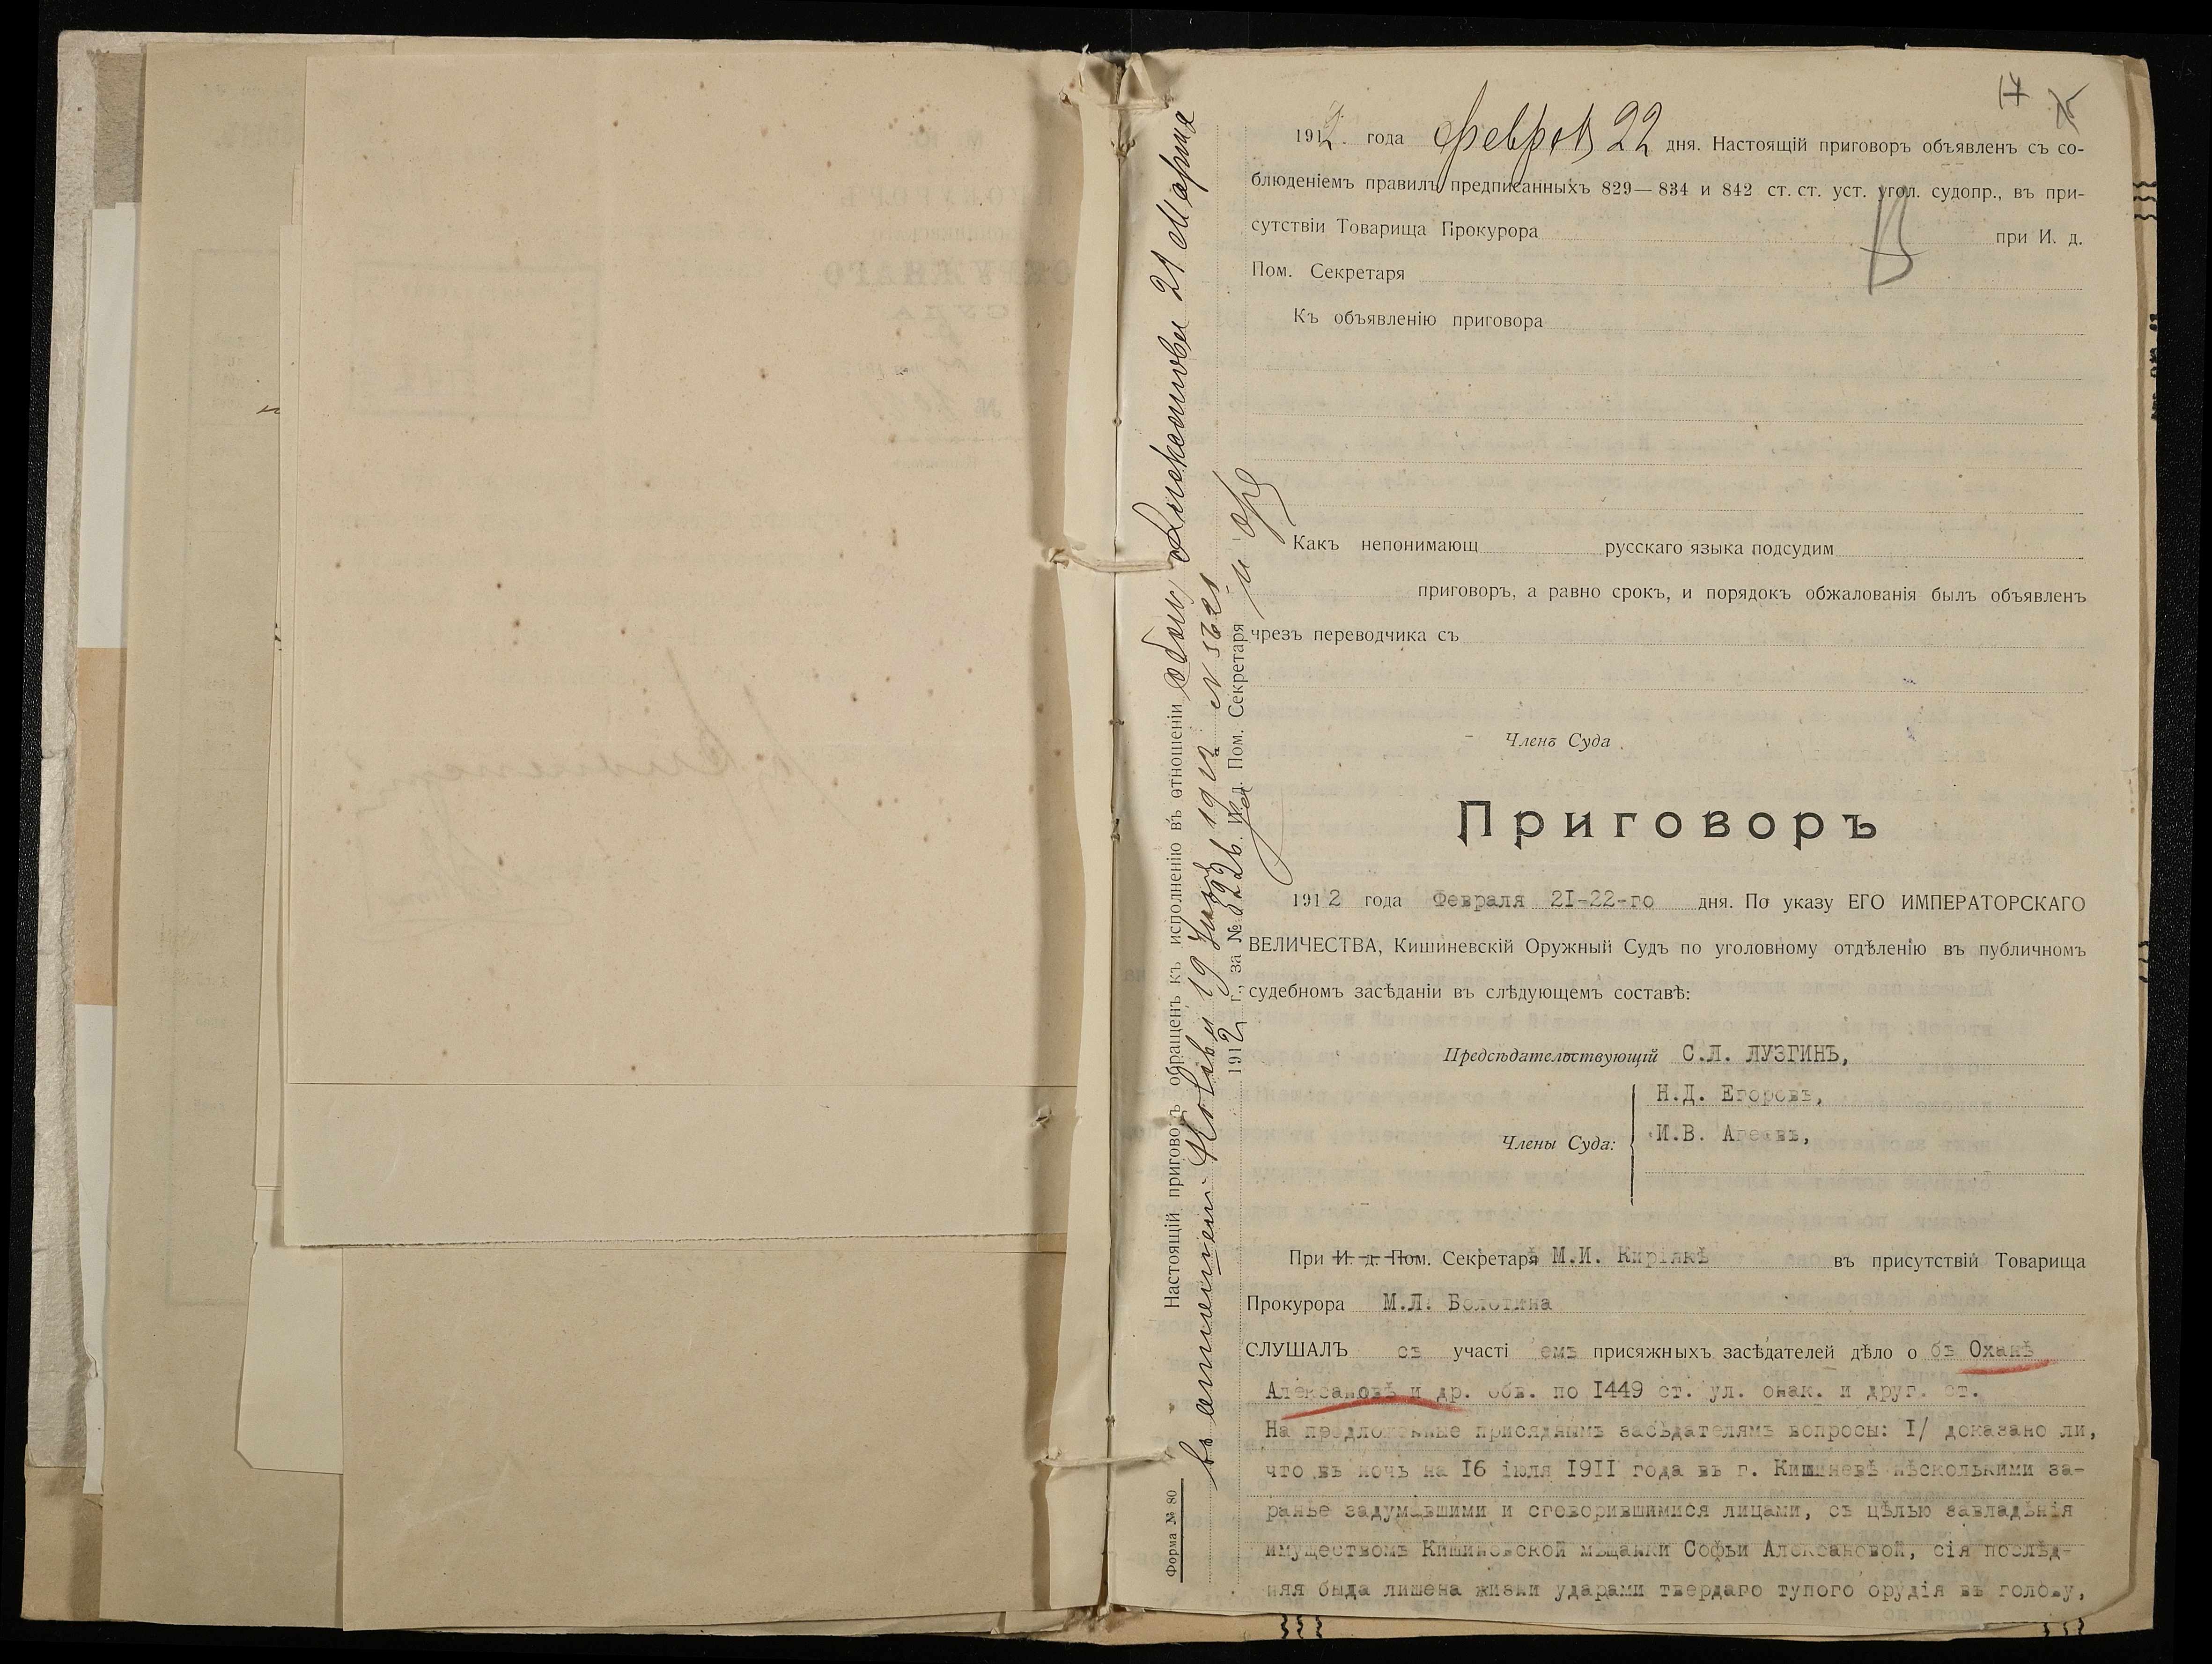 17
1912. года февраля 22 дня. Настоящій приговоръ объявленъ съ со-
блюденіемъ правилъ предписанныхъ 829—834 и 842 ст. ст. уст. угол. судопр., въ при-
сутствіи Товарища Прокурора при И. д.
Пом. Секретаря
Къ объявленію приговора
Какъ непонимающ русскаго языка подсудим
приговоръ, а равно срокъ, и порядокъ обжалованія былъ объявленъ
чрезъ переводчика съ
Членъ Суда
Приговоръ
1912 года Февраля 21-22-го дня. По указу ЕГО ИМПЕРАТОРСКАГО
ВЕЛИЧЕСТВА, Кишиневскій Оружный Судъ по уголовному отдѣленію въ публичномъ
судебномъ засѣданіи въ слѣдующемъ составѣ:
Предсѣдательствующій С.Л. ЛУЗГИНЪ,
Н.Д. Егоровъ,
Члены Суда: И.В. Агеевъ,
При И. д. Пом. Секретаря М.И. Киріякѣ въ присутствіи Товарища
Прокурора М.Л. Болотина
СЛУШАЛЪ съ участі емъ присяжныхъ засѣдателей дѣло о бъ Оханѣ
Алексановѣ и др. обв. по 1449 ст. ул. онак. и друг. ст.
На предложенные присяднымъ засѣдателямъ вопросы: I/ доказано ли,
что въ ночь на 16 іюля 1911 года въ г. Кишиневѣ нѣсколькими за-
ранѣе задумавшими и сговорившимися лицами, съ цѣлью завладѣнія
имуществомъ Кишиневской мѣщанки Софьи Алексановой, сія послѣд-
няя быда лишена жизни ударами твердаго тупого орудія въ голову,
Настоящій приговоръ обращенъ къ исполненію въ отношеніи 21 Марта
въ отношеніи 19 1912 N 5621
1912 г., за № 8226. И. д. Пом. Секретаря
Форма № 80